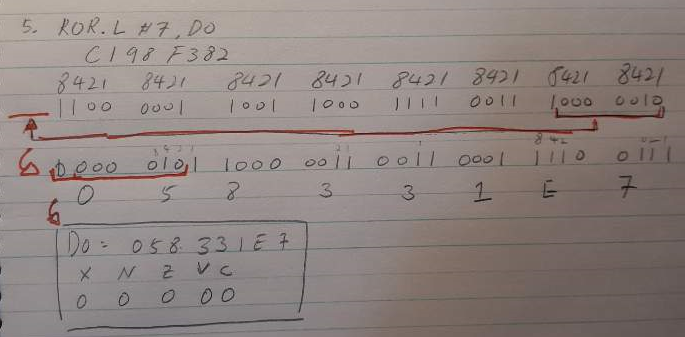 5. ROR.L #7, D0
C198 F382
8421 8421 8421 8421 8421 8421 8421 8421
1100 0001 1001 1000 1111 0011 1000 0010
8421 21 1 842 421
0000 0101 1000 0011 0011 0001 1110 0111
0 5 8 3 3 1 E 7
D0 = 058 331E7
X N Z V C
0 0 0 0 0